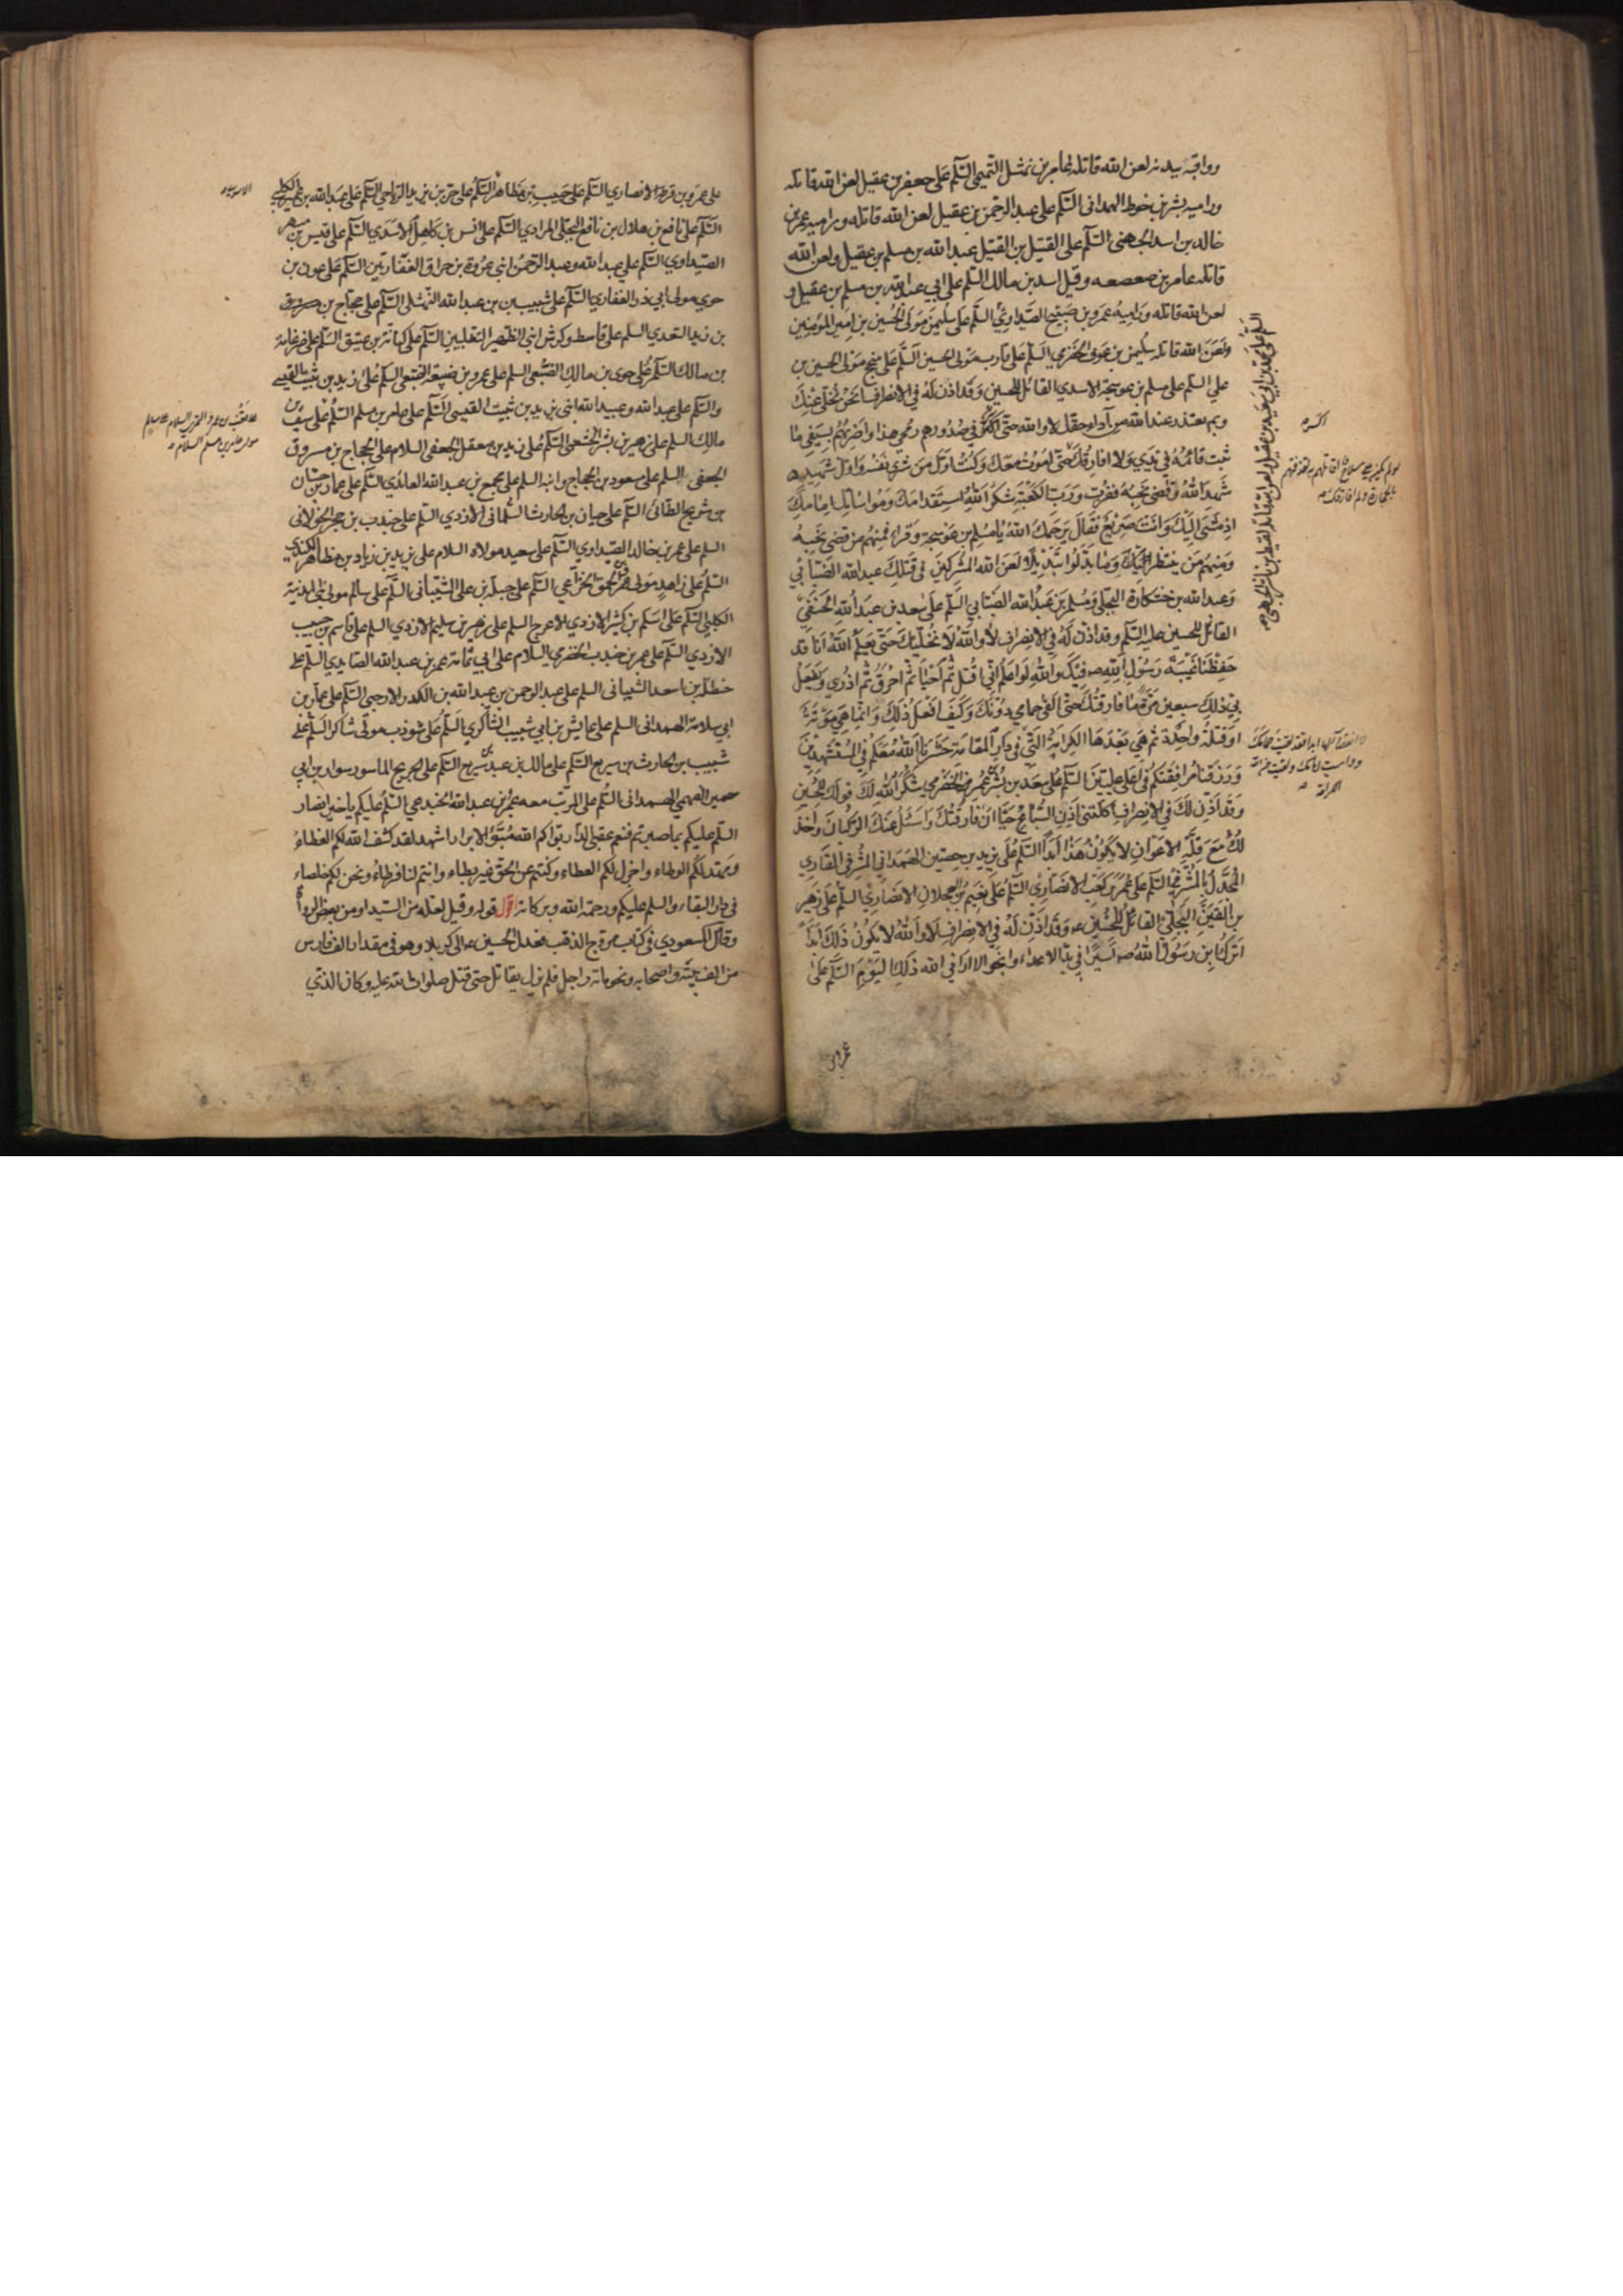 وواقيه بيدنه لعن الله قاتله عامر بن نهشل التميمي السّلم على جعفر بن عقيل لعن الله قاتله
وراميه بشر بن خوط الهمداني السّلم على عبد الرحمن بن عقيل لعن الله قاتله وراميه عمر بن
خالد بن اسد الجهني السّلم على القتيل بن القتيل عبد الله بن مسلم بن عقيل ولعن الله
قاتله عامر بن صعصعه وقيل اسد بن مالك السّلم على ابي عبد الله بن مسلم بن عقيل و
لعن الله قاتله وراميه عمرو بن صبيح الصّيداوي السّلم على سليمن مولى الحسين بن امير المؤمنين
ولعن الله قاتله سليمن بن عوف الحضرمي السّلم على قارب مولى الحسين السّلم على منجح مولى الحسين بن
علي السلم على مسلم بن عوسجة الاسدي القائل للحسين وقد اذن له في الانصراف انحن نخلّي عنك
وبم نعتذر عند الله من آداء حقك لا والله حتى اكسر في صدورهم رمحي هذا واضربهم بسيفي ما
ثبت قائمه في يدي ولا افارقك حتى اموت معك وكنت اوّل من شرى نفسه واوّل شهيد
شهد الله وقضى نحبه ففزت وربّ الكعبة شكر الله استقدامك ومواساتك امامك
اذ مشى اليك وانت صريع فقال يرحمك الله يا مسلم بن عوسجة وقرأ فمنهم من قضى نحبه
ومنهم من ينتظر وما بدّلوا تبديلا لعن الله المشركين في قتلك عبد الله الضبابي
وعبد الله بن خشكارة البجلي ومسلم بن عبد الله الضبابي السّلم على سعد بن عبد الله الحنفي
القائل للحسين عليه السّلم وقد اذن له في الانصراف لا والله لا نخلّيك حتى يعلم الله انا قد
حفظنا غيبة رسول الله صه فيك والله لو اعلم اني اقتل ثم احيا ثم احرق ثم اذرى ويفعل
بي ذلك سبعين مرّة ما فارقتك حتى القى حمامي دونك وكيف افعل ذلك وانما هي موتة
او قتلة واحدة ثم هي بعدها الكرامة التي في دار المقامة حشرنا الله معكم في المستشهدين
ورزقنا مرافقتكم في اعلى علّيين السّلم على بشر بن عمر الحضرمي شكر الله لك قولك للحسين
وقد اذن لك في الانصراف اكلتني اذن السباع حيّا ان فارقتك واسئل عنك الركبان واخذ
لك مع قلّة الاعوان لا يكون هذا ابدا السّلم على يزيد بن حصين الهمداني المشرفي القاري
المجدّل بالمشرفي السّلم على عمر بن كعب الانصاري السّلم على نعيم بن العجلان الانصاري السّلم على زهير
بن القين البجلي القائل للحسين ع وقد اذن له في الانصراف لا والله لا يكون ذلك ابدا
اترك ابن رسول الله صه اسيرا في يد الاعداء وانجو لا اراني الله ذلك اليوم السّلم على
السّلم على محمد بن ابي سعيد بن عقيل لعن الله قاتله لقيط بن ناشر الجهني صه
اكسر
لو لم يكن معي سلاح اقاتلهم به لقذفتهم
بالحجارة ولم افارقك صه
على عمرو بن قرظة الانصاري السّلم على حبيب بن مظاهر السّلم على حرّ بن يزيد الرياحي السّلم على عبد الله بن عمير الكلبي
السّلم على نافع بن هلال بن نافع البجلي المرادي السّلم على انس بن كاهل الاسدي السّلم على قيس بن مسهر
الصّيداوي السّلم على عبد الله وعبد الرحمن ابني عروة بن حراق الغفاريين السّلم على عون بن
حوي مولى ابي ذر الغفاري السّلم على شبيب بن عبد الله النهشلي السّلم على حجاج بن
بن زيد السعدي السلم على قاسط وكرش ابني الظهير التغلبيين السّلم على كنانة بن عتيق السّلم على ضرغامة
بن مالك السّلم على حوى بن مالك الضبعي السلم على عمرو بن ضبيعة الضبعي السّلم على زيد بن ثبيت القيسي
والسّلم على عبد الله وعبيد الله ابني يزيد بن ثبيت القيسي السّلم على عامر بن مسلم السّلم على سيف بن
مالك السلم على زهير بن بشر الخثعمي السّلم على زيد بن معقل الجعفي السلام على الحجاج بن مسروق
الجعفي السلم على مسعود بن الحجاج وابنه السلم على مجمع بن عبد الله العائذي السّلم على عمار بن حسان
بن شريح الطائي السّلم على حيان بن الحارث السّلماني الازدي السّلم على جندب بن حجر الخولاني
السلم على عمر بن خالد الصّيداوي السّلم على سعيد مولاه السلام على يزيد بن زياد بن مظاهر الكندي
السّلم على زاهد مولى عمرو بن الحمق الخزاعي السّلم على جبلة بن علي الشيباني السّلم على سالم مولى بني المدنية
الكلبي السّلم على اسلم بن كثير الازدي الاعرج السلم على زهير بن سليم الازدي السلم على قاسم بن حبيب
الازدي السّلم على عمر بن جندب الحضرمي السلام على ابي ثمامة عمر بن عبد الله الصايدي السّلم على
حنظلة بن اسعد الشيباني السلم على عبد الرحمن بن عبد الله بن الكدر الارحبي السّلم على عمار بن
ابي سلامة الهمداني السلم على عابس بن ابي شبيب الشاكري السّلم على شوذب مولى شاكر السّلم على
شبيب بن الحارث بن سريع السّلم على مالك بن عبد بن سريع السّلم على الجريح الماسور سوار بن ابي
حمير الفهمي الهمداني السّلم على المرتب معه عمر بن عبد الله الجندعي السّلم عليكم يا خير انصار
السّلم عليكم بما صبرتم فنعم عقبى الدار بوّأكم الله مبوّأ الابرار اشهد لقد كشف الله لكم الغطاء
ومهد لكم الوطاء واجزل لكم العطاء وكنتم عن الحق غير بطاء وانتم لنا فرطاء ونحن لكم خلطاء
في دار البقاء والسلم عليكم ورحمة الله وبركاته اقول قوله وقيل لعله من السيد او من بعض الرواة
وقال المسعودي في كتاب مروج الذهب فعدل الحسين ع الى كربلا وهو في مقدار الف فارس
من اهل بيته واصحابه ونحو مائة راجل فلم يزل يقاتل حتى قتل صلوات الله عليه وكان الذي